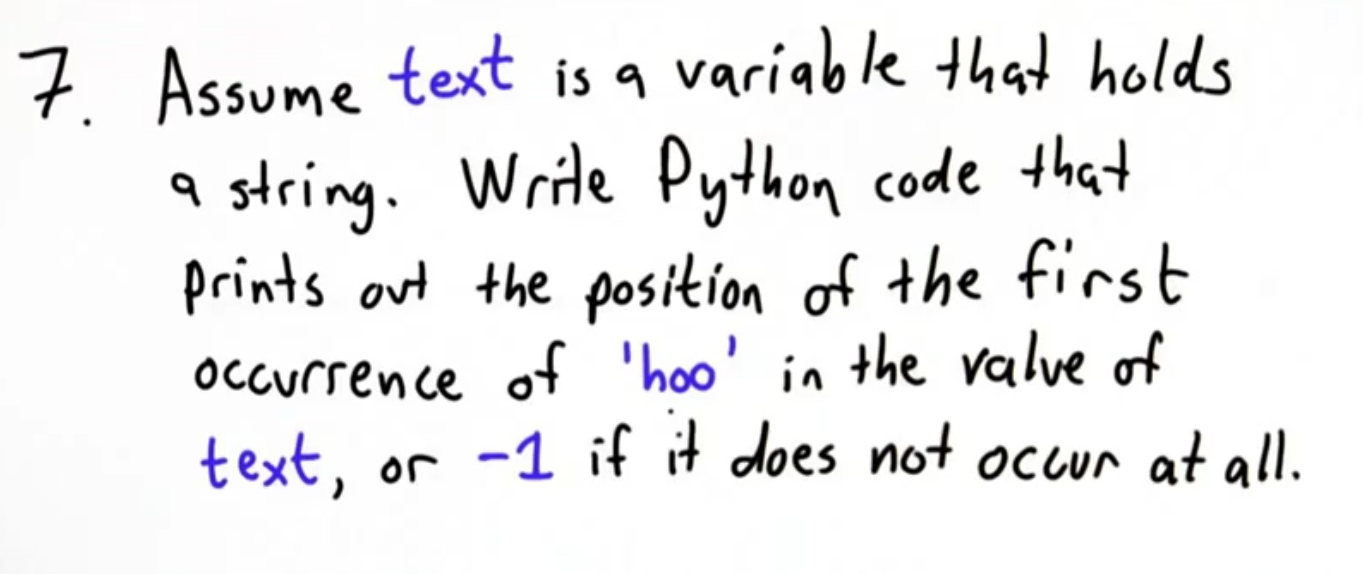 7. Assume text is a variable that holds
a string. Write Python code that
prints out the position of the first
occurrence of 'hoo' in the value of
text, or -1 if it does not occur at all.